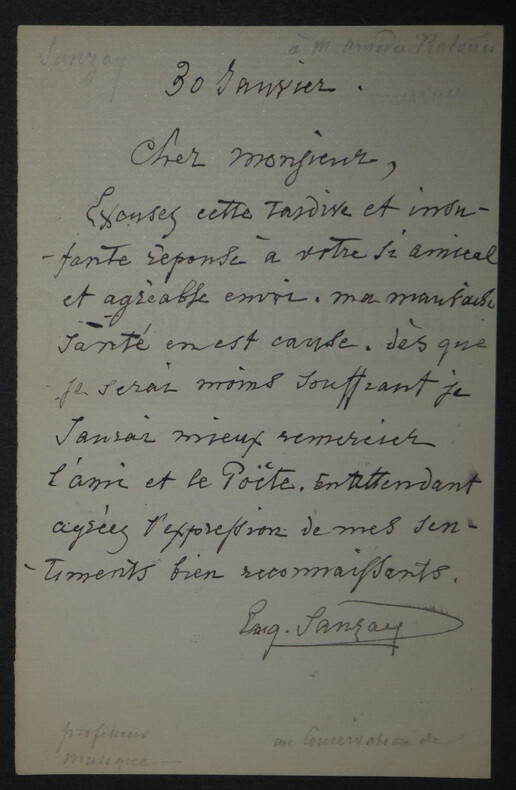 Sauzay
à M. Amédée
30 Janvier.
Cher monsieur,
Excusez cette tardive et insu-
-fante réponse à votre si amical
et agréable envoi. ma mauvaise
santé en est cause. dès que
je serai moins souffrant je
saurai mieux remercier
l'ami et le Poëte. En attendant
agréez l'expression de mes sen-
-timents bien reconnaissants.
Eug. Sauzay
professeur au Conservatoire de
musique